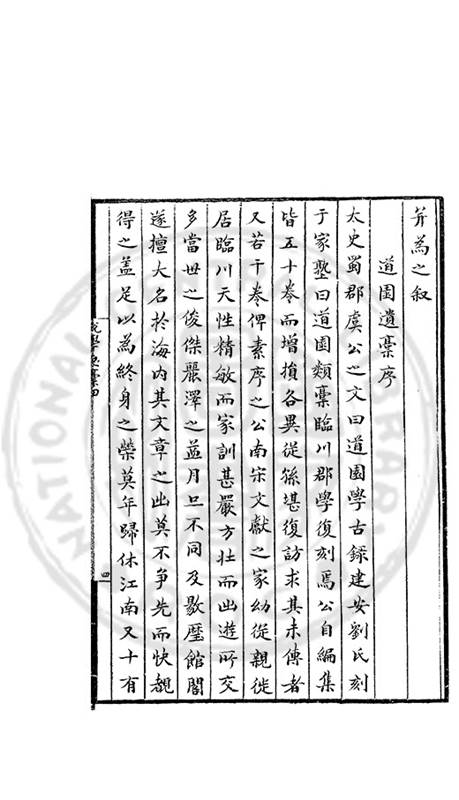 并為之叙
道園遺稾序
太史蜀郡虞公之文曰道園學古録建安劉氏刻
于家塾曰道園類稾臨川郡學復刻焉公自編集
皆五十卷而增損各異從孫堪復訪求其未傳者
又若干卷俾素序之公南宋文獻之家幼從親徙
居臨川天性精敏而家訓甚嚴方壯而出遊所交
多當世之俊傑麗澤之益月旦不同及敭歷館閣
遂擅大名於海内其文章之出莫不争先而快覩
得之盖足以為終身之榮莫年歸休江南又十有
說學齋稾四
四
NATIONAL